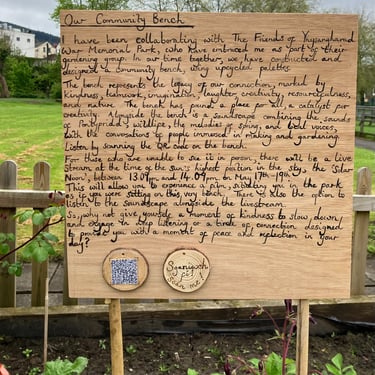 Our Community Bench
I have been collaborating with The Friends of Ynysangharad
War Memorial Park, who have embraced me as part of their
gardening group. In our time together, we have constructed and
designed a community bench, using upcycled palettes.
The bench represents the legacy of our connection, marked by
kindness, teamwork, imagination, laughter, creativity, resourcefulness,
and nature. The bench has found a place for all, a catalyst for
creativity. Alongside the bench is a soundscape containing the sounds
of Pontypridd's wildlife, the melodies of spring and bird voices,
with the conversations of people immersed in making and gardening.
Listen by scanning the QR code on the bench.
For those who are unable to see it in person, there will be a live
stream at the time of the sun's highest position in the sky, the 'Solar
Noon', between 13:09pm and 14:09pm on May 17th-19th
This will allow you to experience a film, situating you in the park
as if you were sitting on this very bench. There'll be the option to
listen to the soundscape alongside the livestream.
So, why not give yourself a moment of kindness to slow down,
and engage in deep listening or a circle of connection designed
to provide you with a moment of peace and reflection in your
day?
Sganiwch
fi!
Scan me!